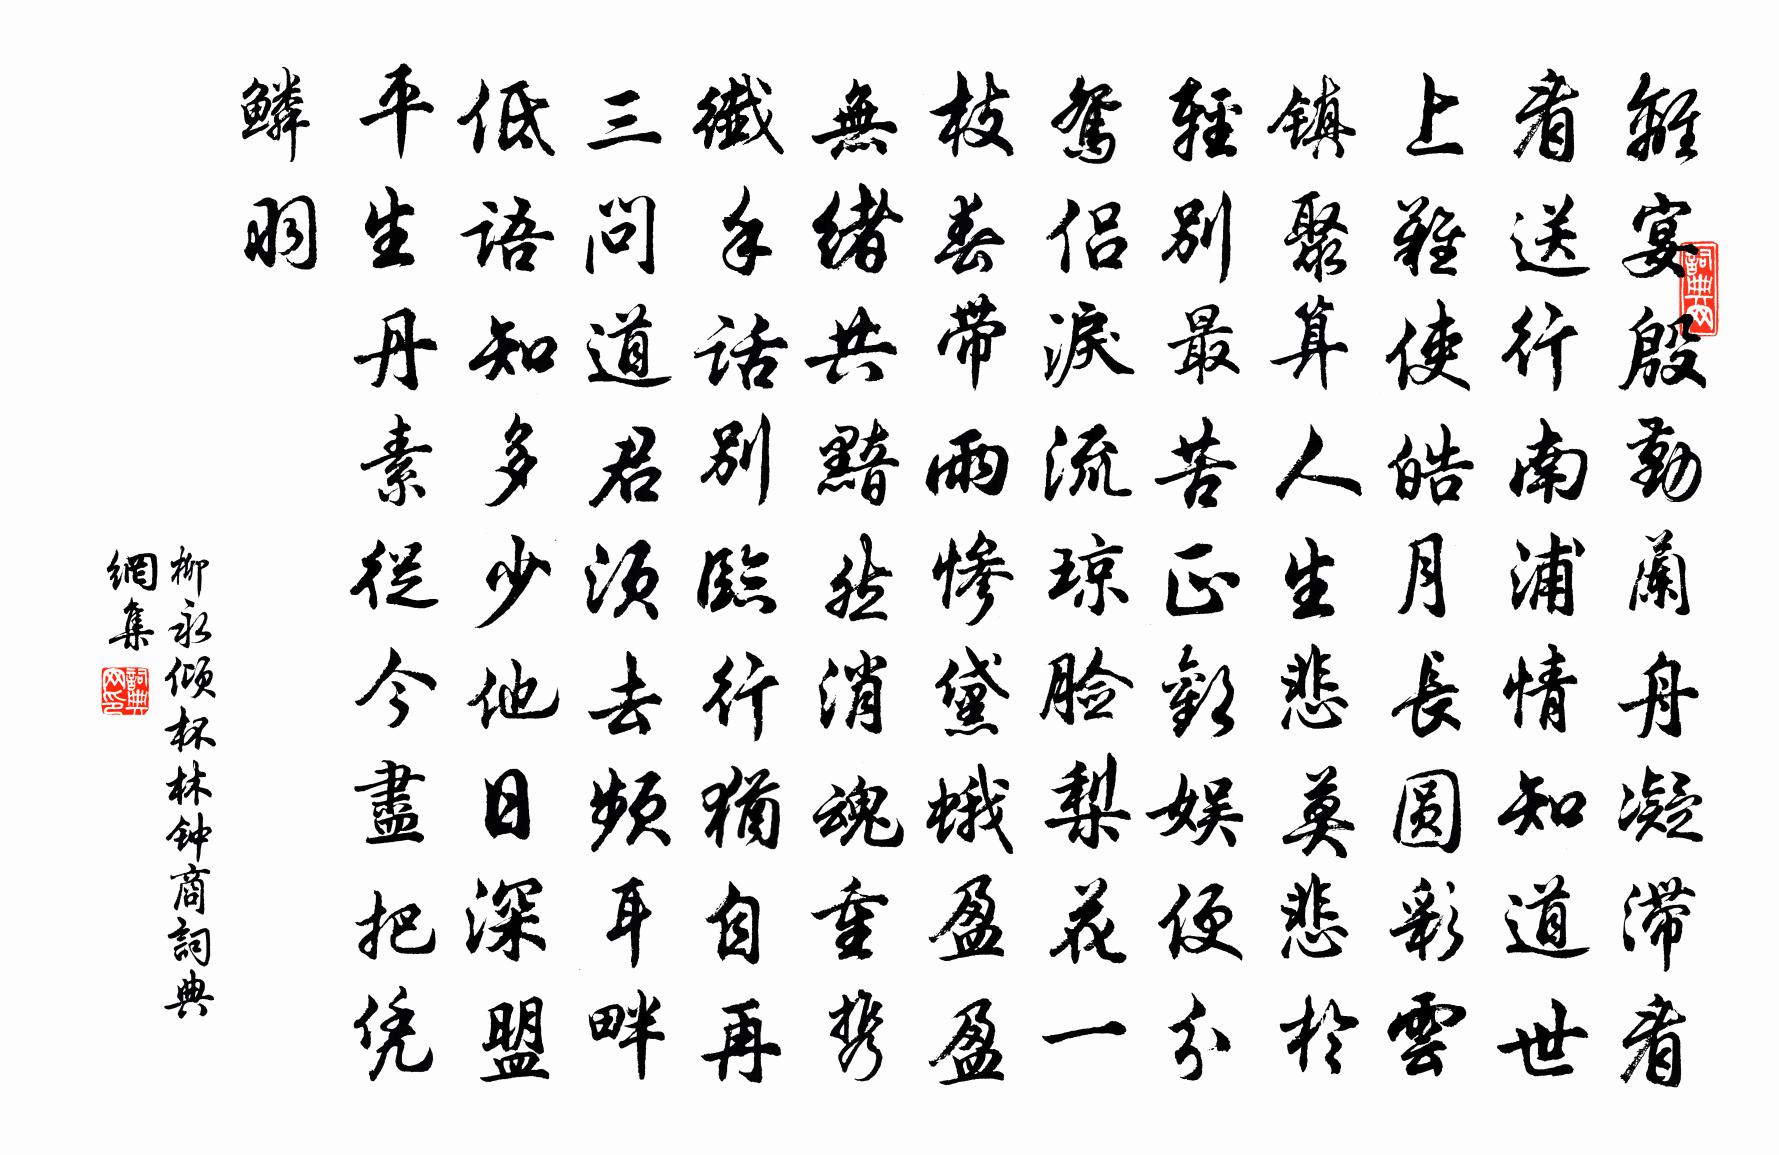 離宴殷勤蘭舟凝滯看
看送行南浦情知道世
上難使皓月長圓彩雲
镇聚算人生悲莫悲於
輕別最苦正歡娱便分
鴛侣淚流琼脸梨花一
枝春带雨惨黛蛾盈盈
無緒共黯然消魂重携
纖手話别臨行猶自再
三問道君须去頻耳畔
低語知多少他日深盟
平生丹素從今盡把凭
鳞羽
柳永倾杯林钟商詞典
網集
詞典网
詞典网印